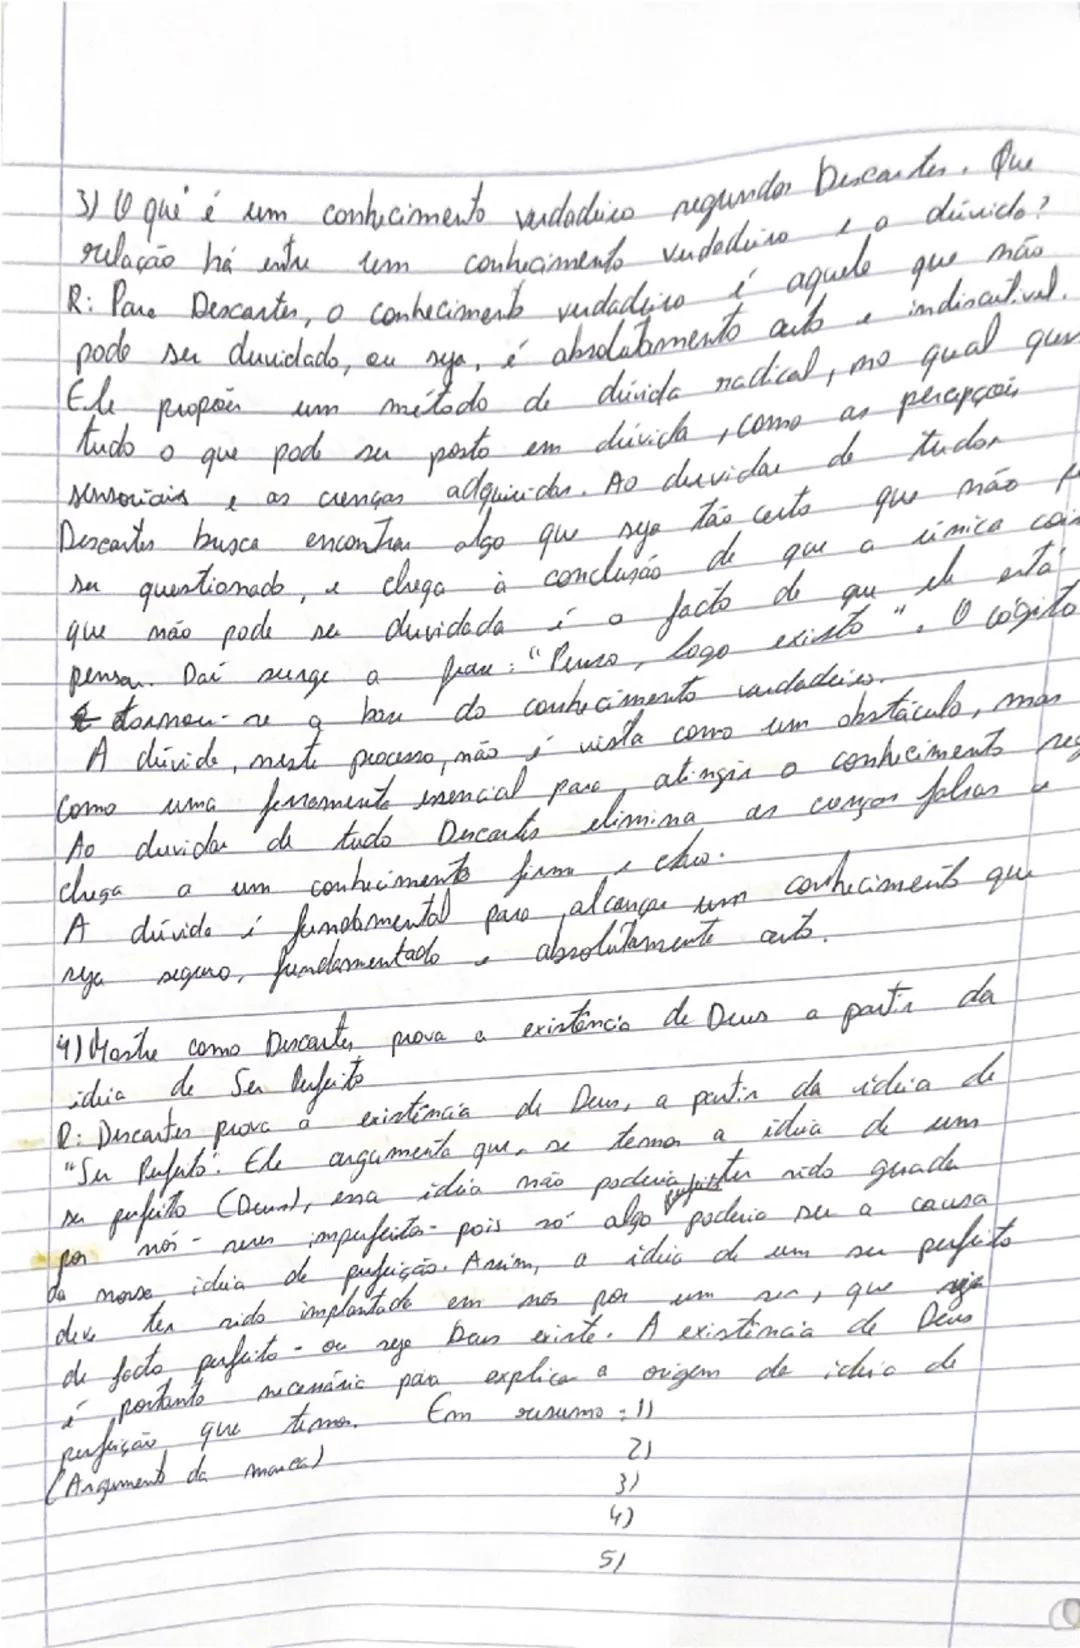 3) O que é um conhecimento verdadeiro segundo Descartes. Que
relação há entre um conhecimento verdadeiro e a dúvida?
R: Para Descartes, o conhecimento verdadeiro é aquele que não
pode ser duvidado, ou seja, é absolutamente certo e indiscutível.
Ele propões um método de dúvida radical, no qual
tudo o que pode ser posto em dúvida, como as percepções
sensoriais e as crenças adquiridas. Ao duvidar de tudo
Descartes busca encontrar algo que seja tão certo que não
ser questionado, e chega à conclusão de que a única
que não pode ser duvidada é o facto de que ele está
pensar. Daí surge a frase: "Penso, logo existo". O cógito
tornou-se a base do conhecimento verdadeiro.
A dúvida, neste processo, não é vista como um obstáculo, mas
como uma ferramenta essencial para atingir o conhecimento
Ao duvidar de tudo Descartes elimina as crenças falsas e
chega a um conhecimento firme e claro.
A dúvida é fundamental para alcançar um conhecimento que
seja seguro, fundamentado e absolutamente certo.
4) Mostre como Descartes prova a existência de Deus a partir da
ideia de Ser Perfeito
R: Descartes prova a existência de Deus, a partir da ideia de
"Ser Perfeito". Ele argumenta que, se temos a ideia de um
ser perfeito (Deus), essa ideia não poderia ter sido gerada
por nós - seres imperfeitos - pois só algo perfeito poderia ser a causa
da nossa ideia de perfeição. Assim, a ideia de um ser perfeito
deve ter sido implantada em nós por um ser, que seja
de facto perfeito - ou seja Deus existe. A existência de Deus
é portanto necessária para explicar a origem da ideia de
perfeição que temos. Em resumo: 1)
(Argumento da marca) 2)
3)
4)
5)